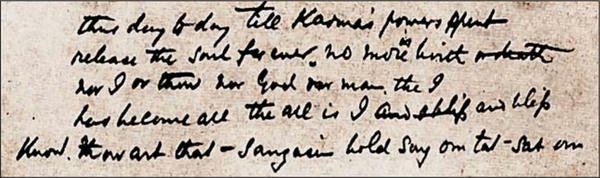 thus day to day till Karma's powers spent
release the soul for ever. no more is birth or death
nor I or thou nor God nor man. the I
has become all the all is I and bliss and bliss
Know. Thou art that – Sanyasin bold say om tat-sat om